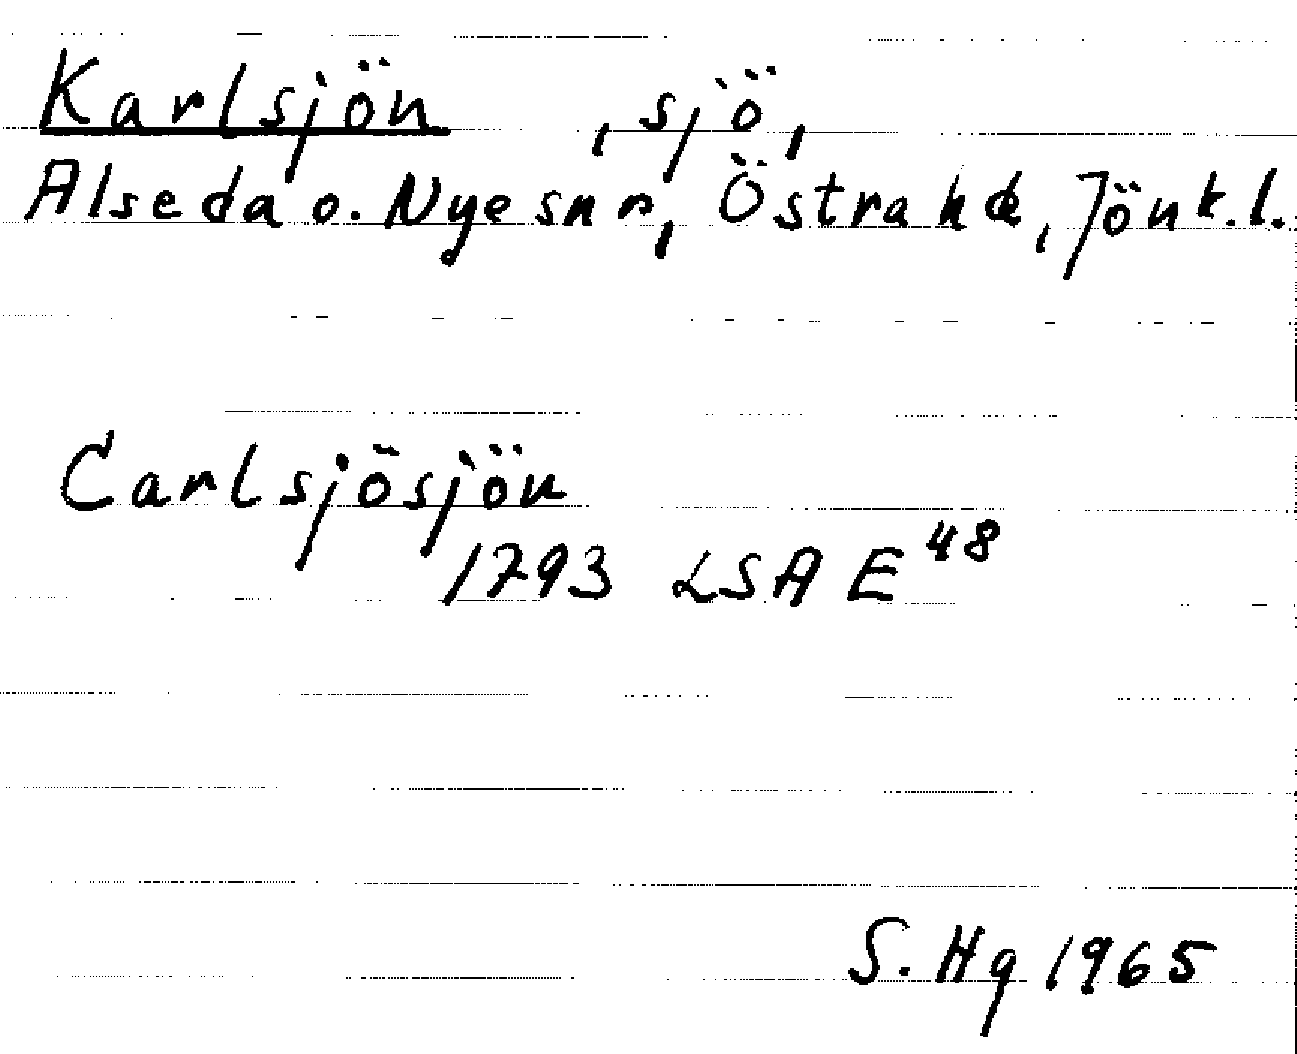 Karlsjön , sjö,
Alseda o. Nye snr, Östra hd, Jönk.l.
Carlsjösjön
1793 LSA E 48
S. Hg 1965